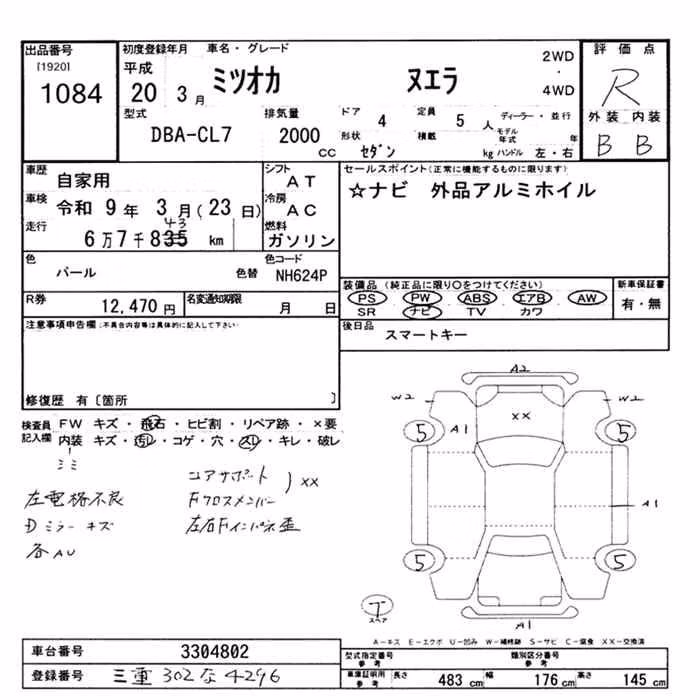 出品番号 初度登録年月 車名・グレード 2WD 評価点
[1920] 平成 ミツオカ ヌエラ ・ R
1084 20 3月 4WD
外装 内装
型式 排気量 ドア 4 定員 5人 ディーラー・並行
DBA-CL7 2000 CC 形状 セダン 積載 kg モデル年式 年 B B
ハンドル 左・右
車歴 自家用 シフト AT セールスポイント(正常に機能するものに限ります)
車検 令和 9年 3月(23日) 冷房 AC ☆ナビ 外品アルミホイル
走行 43
6万7千835 km 燃料 ガソリン
色 パール 色替 色コード NH624P
装備品 (純正品に限り○をつけてください) 新車保証書
PS PW ABS エアB AW 有・無
SR ナビ TV カワ
R券 12,470円 名変通知期限 月 日
後日品 スマートキー
注意事項申告欄(不具合内容等は具体的に記入して下さい)
修復歴 有〔箇所 〕
検査員 FW キズ・飛石・ヒビ割・リペア跡・×要
記入欄 内装 キズ・汚レ・コゲ・穴・スレ・キレ・破レ
ミミ
左電格不良
Dミラーキズ
各AU
コアサポート
Fクロスメンバー
左右Fインパネ歪
) XX
A2
W2 W2
XX
5 A1 5
A1
5 5
T
スペア
A1
A-キズ E-エクボ U-凹み W-補修跡 S-サビ C-腐食 XX-交換済
車台番号 3304802 型式指定番号 参考 類別区分番号 参考
登録番号 三重 302 な 4296 車庫証明用 参考 長さ 483 cm 幅 176 cm 高さ 145 cm